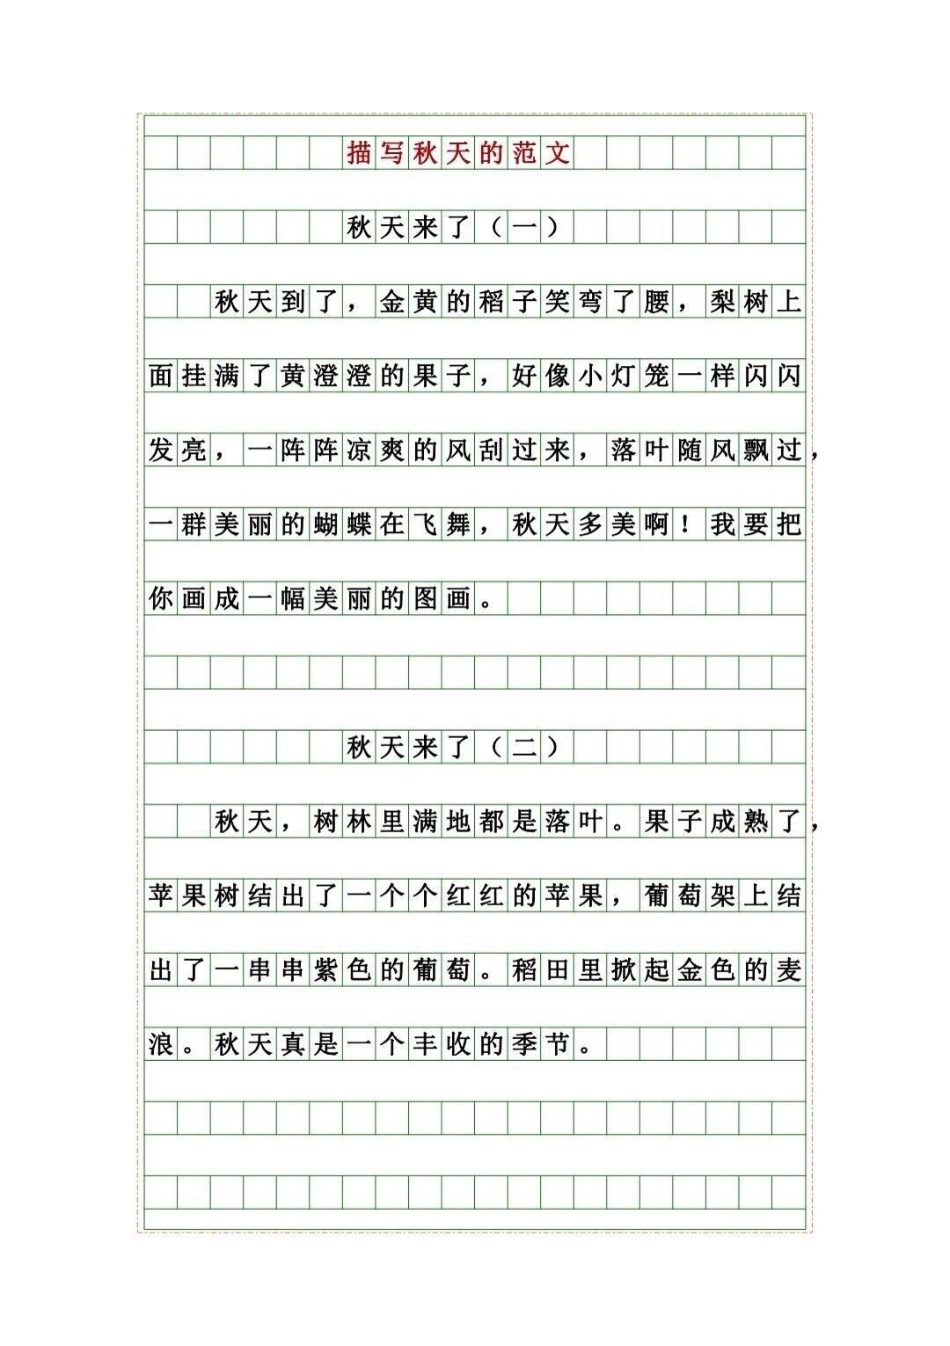 描写秋天的范文
秋天来了（一）
秋天到了，金黄的稻子笑弯了腰，梨树上
面挂满了黄澄澄的果子，好像小灯笼一样闪闪
发亮，一阵阵凉爽的风刮过来，落叶随风飘过，
一群美丽的蝴蝶在飞舞，秋天多美啊！我要把
你画成一幅美丽的图画。
秋天来了（二）
秋天，树林里满地都是落叶。果子成熟了，
苹果树结出了一个个红红的苹果，葡萄架上结
出了一串串紫色的葡萄。稻田里掀起金色的麦
浪。秋天真是一个丰收的季节。